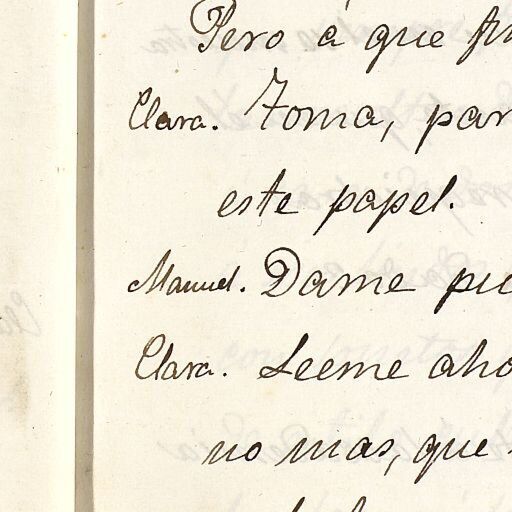 Pero á que
Clara. Toma, par
este papel.
Manuel. Dame
Clara. Leeme aho
no mas, que